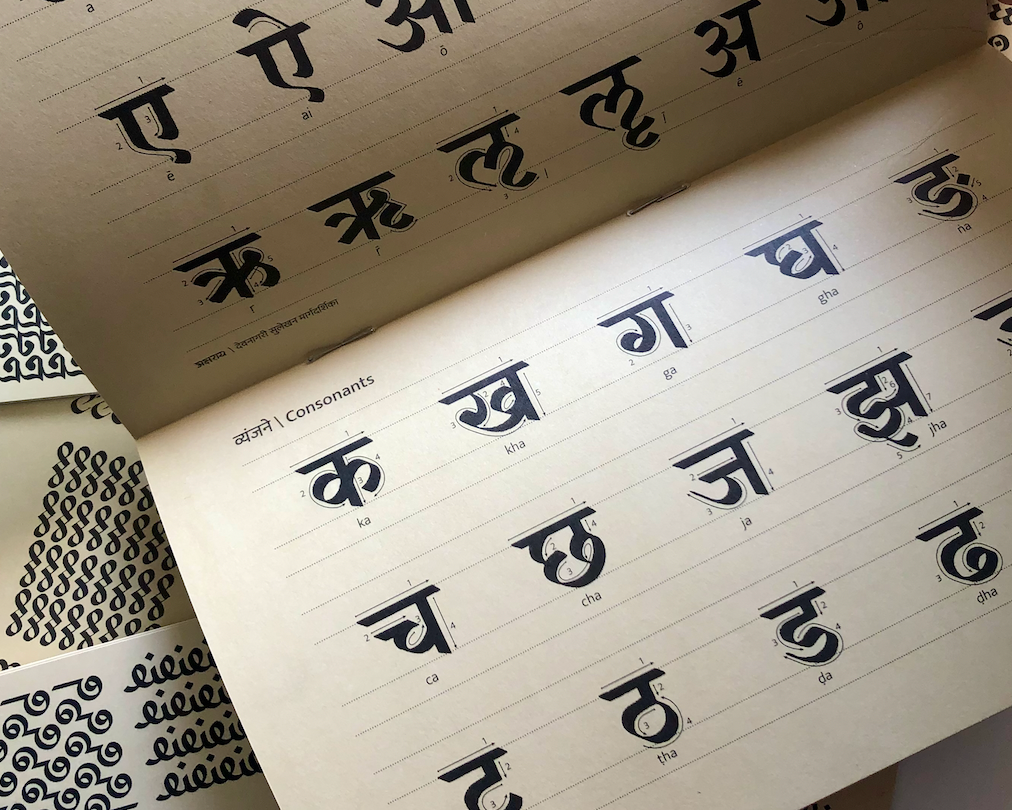 a
ए ऐ
ē ai ō
ऋ ॠ ऌ ॡ अ
ê ô
अक्षराय \ देवनागरी सुलेखन मार्गदर्शिका
व्यंजने \ Consonants
क ख ग घ ङ
ka kha ga gha ṅa
च छ ज झ
ca cha ja jha
ट ठ ड ढ
ṭha ḍa ḍha